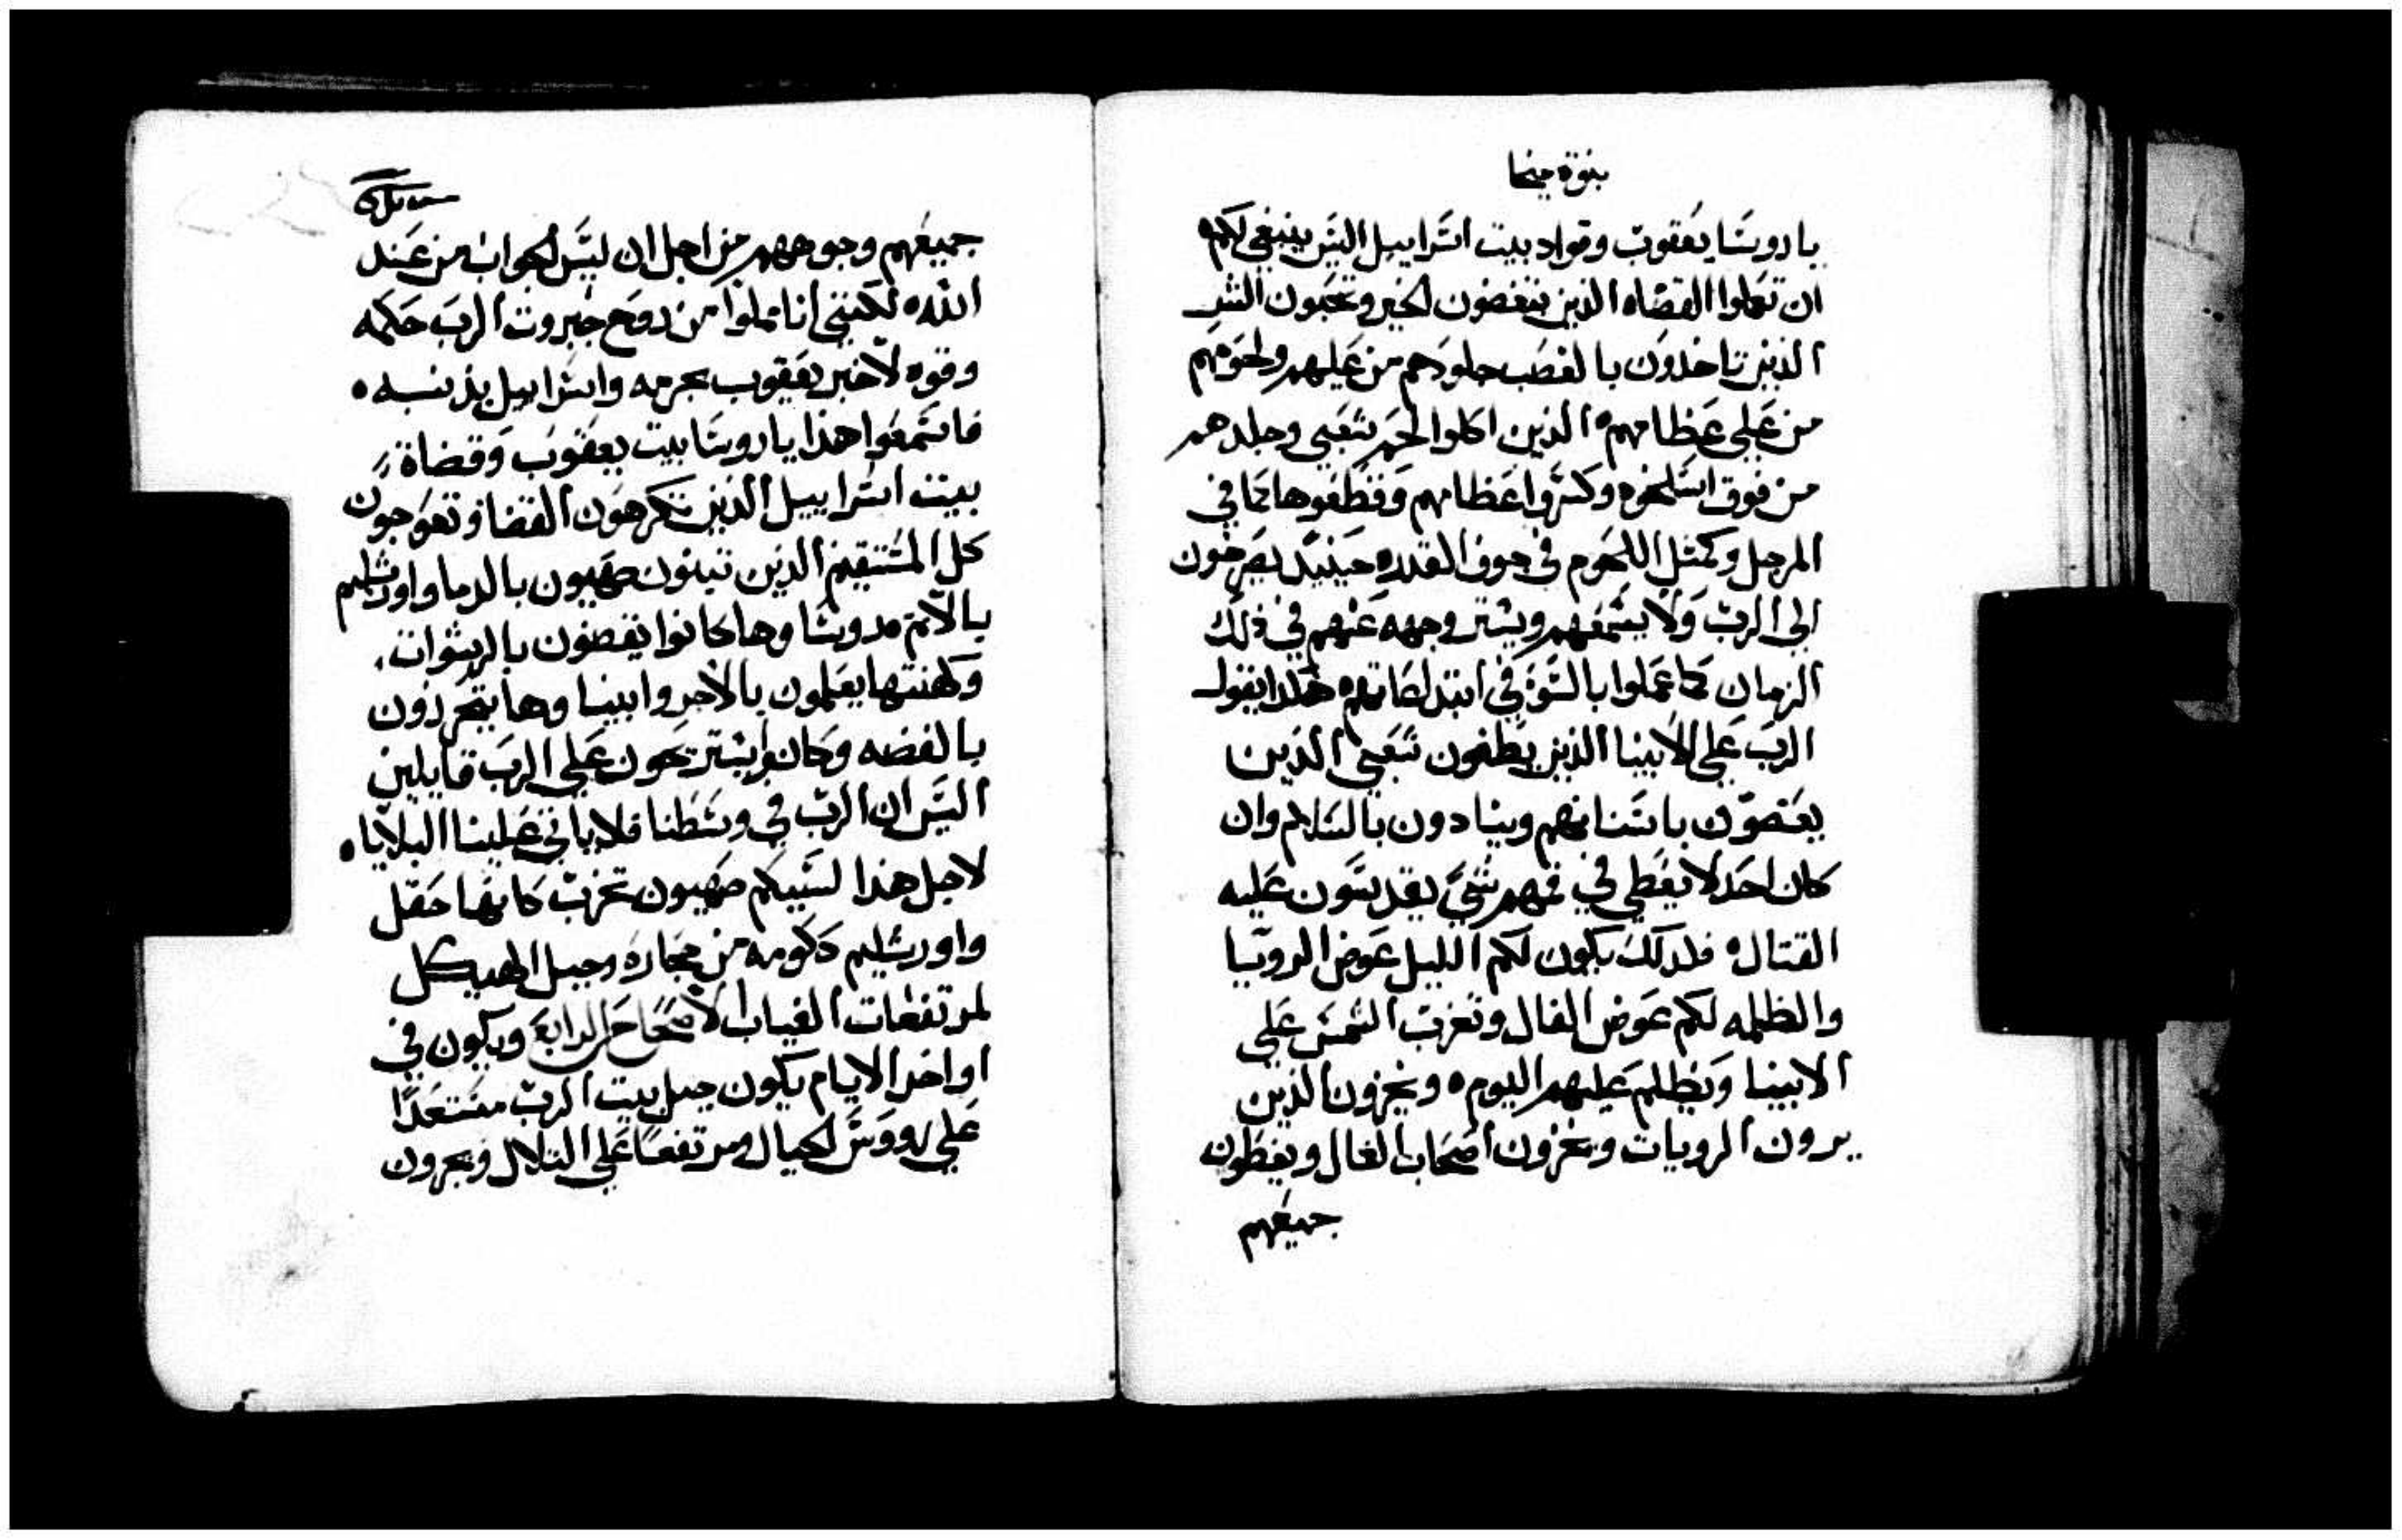 نبوة ميخا
يا روسا يعقوب وقواد بيت اسراييل اليس ينبغي لكم
ان تعلموا القضاه الذين تبغضون الخير وتحبون الشر
الذين تاخدون بالغصب جلودهم من عليهم ولحومهم
من علي عظامهم الذين اكلوا لحم شعبي وجلدهم
من فوق اسلخوه وكسروا عظامهم وقطعوها كما في
المرجل وكمثل اللحوم في جوف القدره حينيد يصرخون
الي الرب ولا يسمعهم ويستر وجهه عنهم في ذلك
الزمان كما عملوا بالسوء في ابتداعاتهم هكدا يقول
الرب علي الانبيا الذين يطغون شعبي الذين
يعضون باسنانهم وينادون بالسلام وان
كان احد لا يعطي في فمهم شي يقدسون عليه
القتال فلدلك يكون لكم الليل عوض الرويا
والظلمه لكم عوض الفال وتغرب الشمس علي
الانبيا ويظلم عليهم اليوم ويخزون الذين
يرون الرويات ويخزون اصحاب الفال ويغطون
جميعهم
جميعهم وجوههم من اجل ان ليس الجواب من عند
الله لكنني انا مملوا من روح جبروت الرب حكمه
وقوه لاخبر يعقوب بجرمه واسراييل بذنبه
فاسمعوا هذا يا روسا بيت يعقوب وقضاة
بيت اسراييل الذين تكرهون القضا وتعوجون
كل المستقيم الذين تبنون صهيون بالدما واورشليم
بالاثم روسا وها كانوا يقضون بالرشوات
وكهنتها يعلمون بالاجر وانبيا وها يتحرزون
بالفضه وكانوا يستريحون علي الرب قايلين
اليس ان الرب في وسطنا فلا ياتي علينا البلايا
لاجل هذا لسبيكم صهيون تحرث كانها حقل
واورشليم دكومه من حجاره وجبل الهيكل
لمرتفعات الغياب الاصحاح الرابع ويكون في
اواخر الايام يكون جبل بيت الرب مستعدا
علي رووس الجبال ومرتفعا علي التلال ويجرون